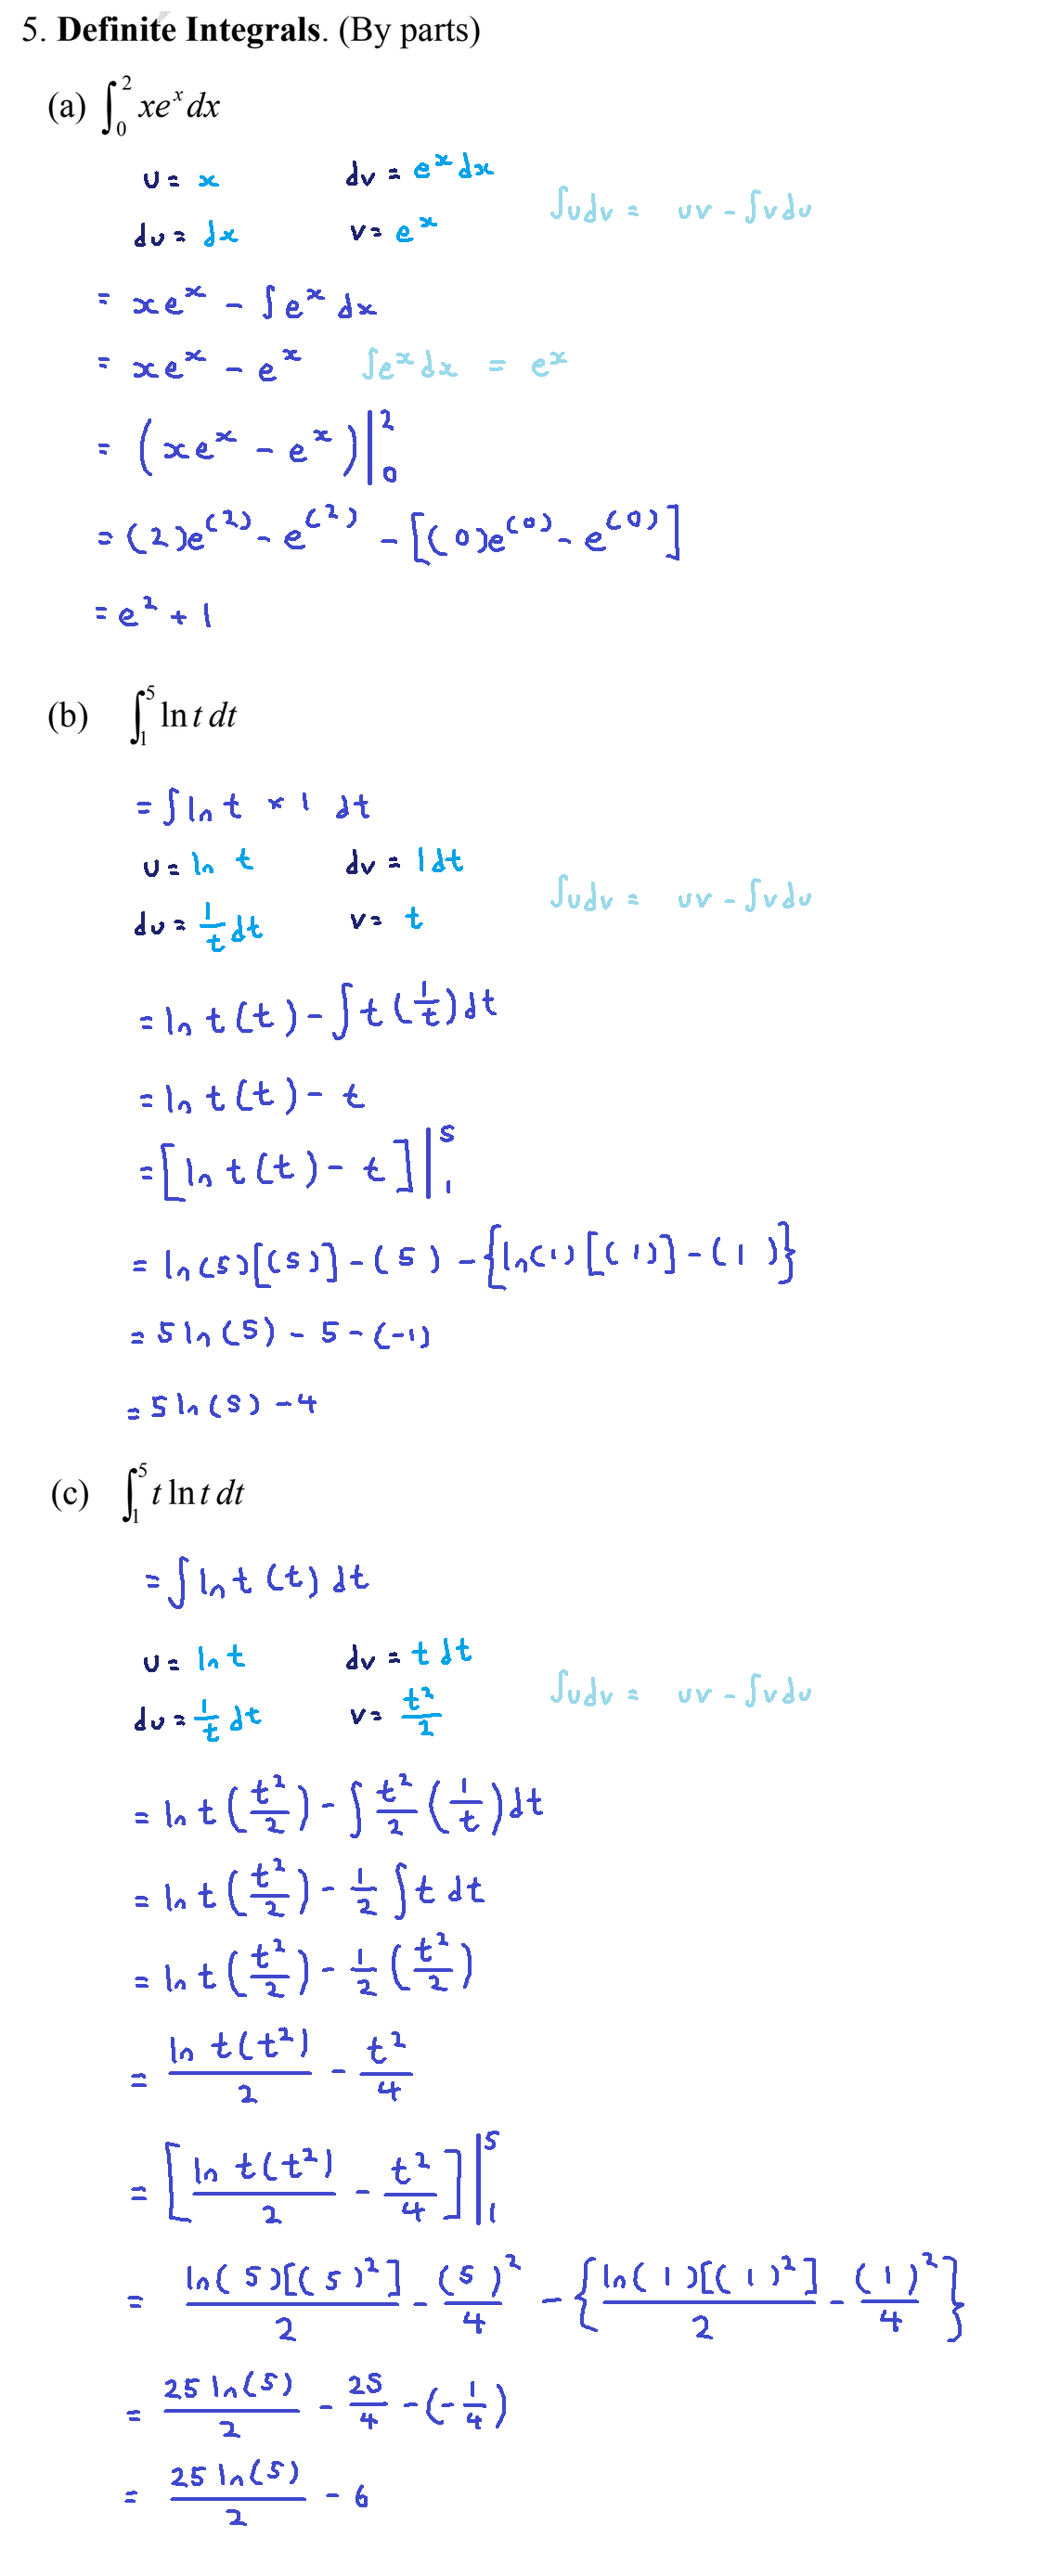 5. Definite Integrals. (By parts)
(a) ∫₀² xeˣ dx
u = x dv = eˣ dx
∫udv = uv - ∫vdu
du = dx v = eˣ
= xeˣ - ∫eˣ dx
= xeˣ - eˣ ∫eˣ dx = eˣ
= (xeˣ - eˣ)|₀²
= (2)e⁽²⁾ - e⁽²⁾ - [(0)e⁽⁰⁾ - e⁽⁰⁾]
= e² + 1
(b) ∫₁⁵ ln t dt
= ∫ln t × 1 dt
u = ln t dv = 1dt
∫udv = uv - ∫vdu
du = 1/t dt v = t
= ln t(t) - ∫t(1/t)dt
= ln t(t) - t
= [ln t(t) - t]|₁⁵
= ln(5)[(5)] - (5) - {ln(1)[(1)] - (1)}
= 5 ln(5) - 5 - (-1)
= 5 ln(5) - 4
(c) ∫₁⁵ t ln t dt
= ∫ln t (t) dt
u = ln t dv = t dt
∫udv = uv - ∫vdu
du = 1/t dt v = t²/2
= ln t(t²/2) - ∫ t²/2 (1/t)dt
= ln t(t²/2) - 1/2 ∫t dt
= ln t(t²/2) - 1/2 (t²/2)
= ln t(t²)/2 - t²/4
= [ln t(t²)/2 - t²/4]|₁⁵
= ln(5)[(5)²]/2 - (5)²/4 - {ln(1)[(1)²]/2 - (1)²/4}
= 25 ln(5)/2 - 25/4 - (-1/4)
= 25 ln(5)/2 - 6